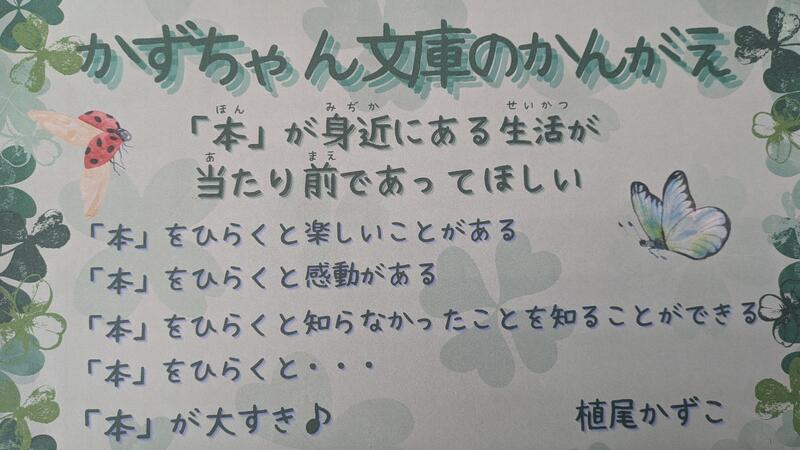 かずちゃん文庫のかんがえ
「本」が身近にある生活が
当たり前であってほしい
「本」をひらくと楽しいことがある
「本」をひらくと感動がある
「本」をひらくと知らなかったことを知ることができる
「本」をひらくと・・・
「本」が大すき♪
植尾かずこ